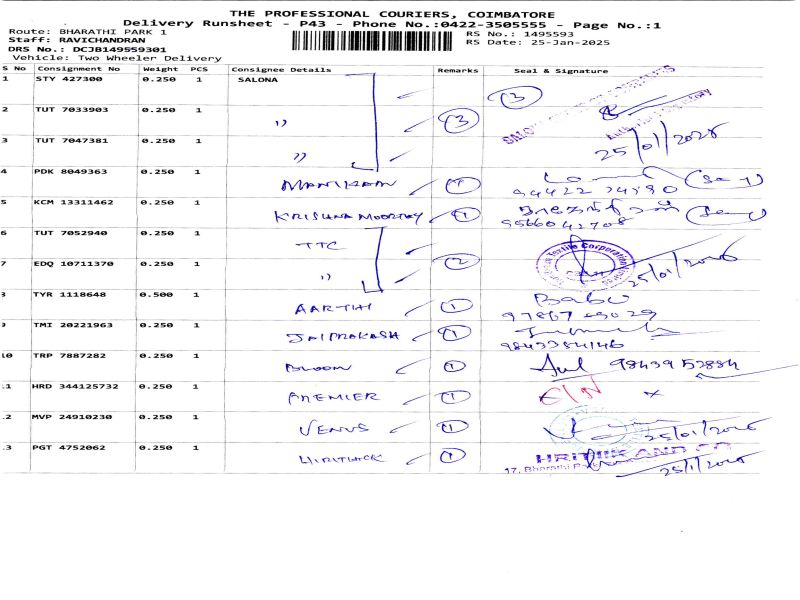 THE PROFESSIONAL COURIERS, COIMBATORE
Delivery Runsheet - P43 - Phone No.:0422-3505555 - Page No.:1
Route: BHARATHI PARK 1
RS No.: 1495593
Staff: RAVICHANDRAN
RS Date: 25-Jan-2025
DRS No.: DCJB149559301
Vehicle: Two Wheeler Delivery
S No Consignment No Weight PCS Consignee Details Remarks Seal & Signature
1 STY 427300 0.250 1 SALONA 3
2 TUT 7033903 0.250 1 ,, 3
3 TUT 7047381 0.250 1 ,, 25/01/2025
4 PDK 8049363 0.250 1 MANIKAAN 1
5 KCM 13311462 0.250 1 KRISHNA MOORTHY 1 9566042708
6 TUT 7052940 0.250 1 TTC
7 EDQ 10711370 0.250 1 ,, 2 Textile Corporation 25/01/2025
8 TYR 1118648 0.500 1 AARTHI 1 Babu
9 TMI 20221963 0.250 1 JAIPRAKASH 1 9843384146
10 TRP 7887282 0.250 1 BLOOM 1 98439 52884
11 HRD 344125732 0.250 1 PREMIER 1
12 MVP 24910230 0.250 1 VENUS 1 25/01/2025
13 PGT 4752062 0.250 1 HRITHICK 1 HRITHIK AND CO
17, Bharathi 25/1/2025